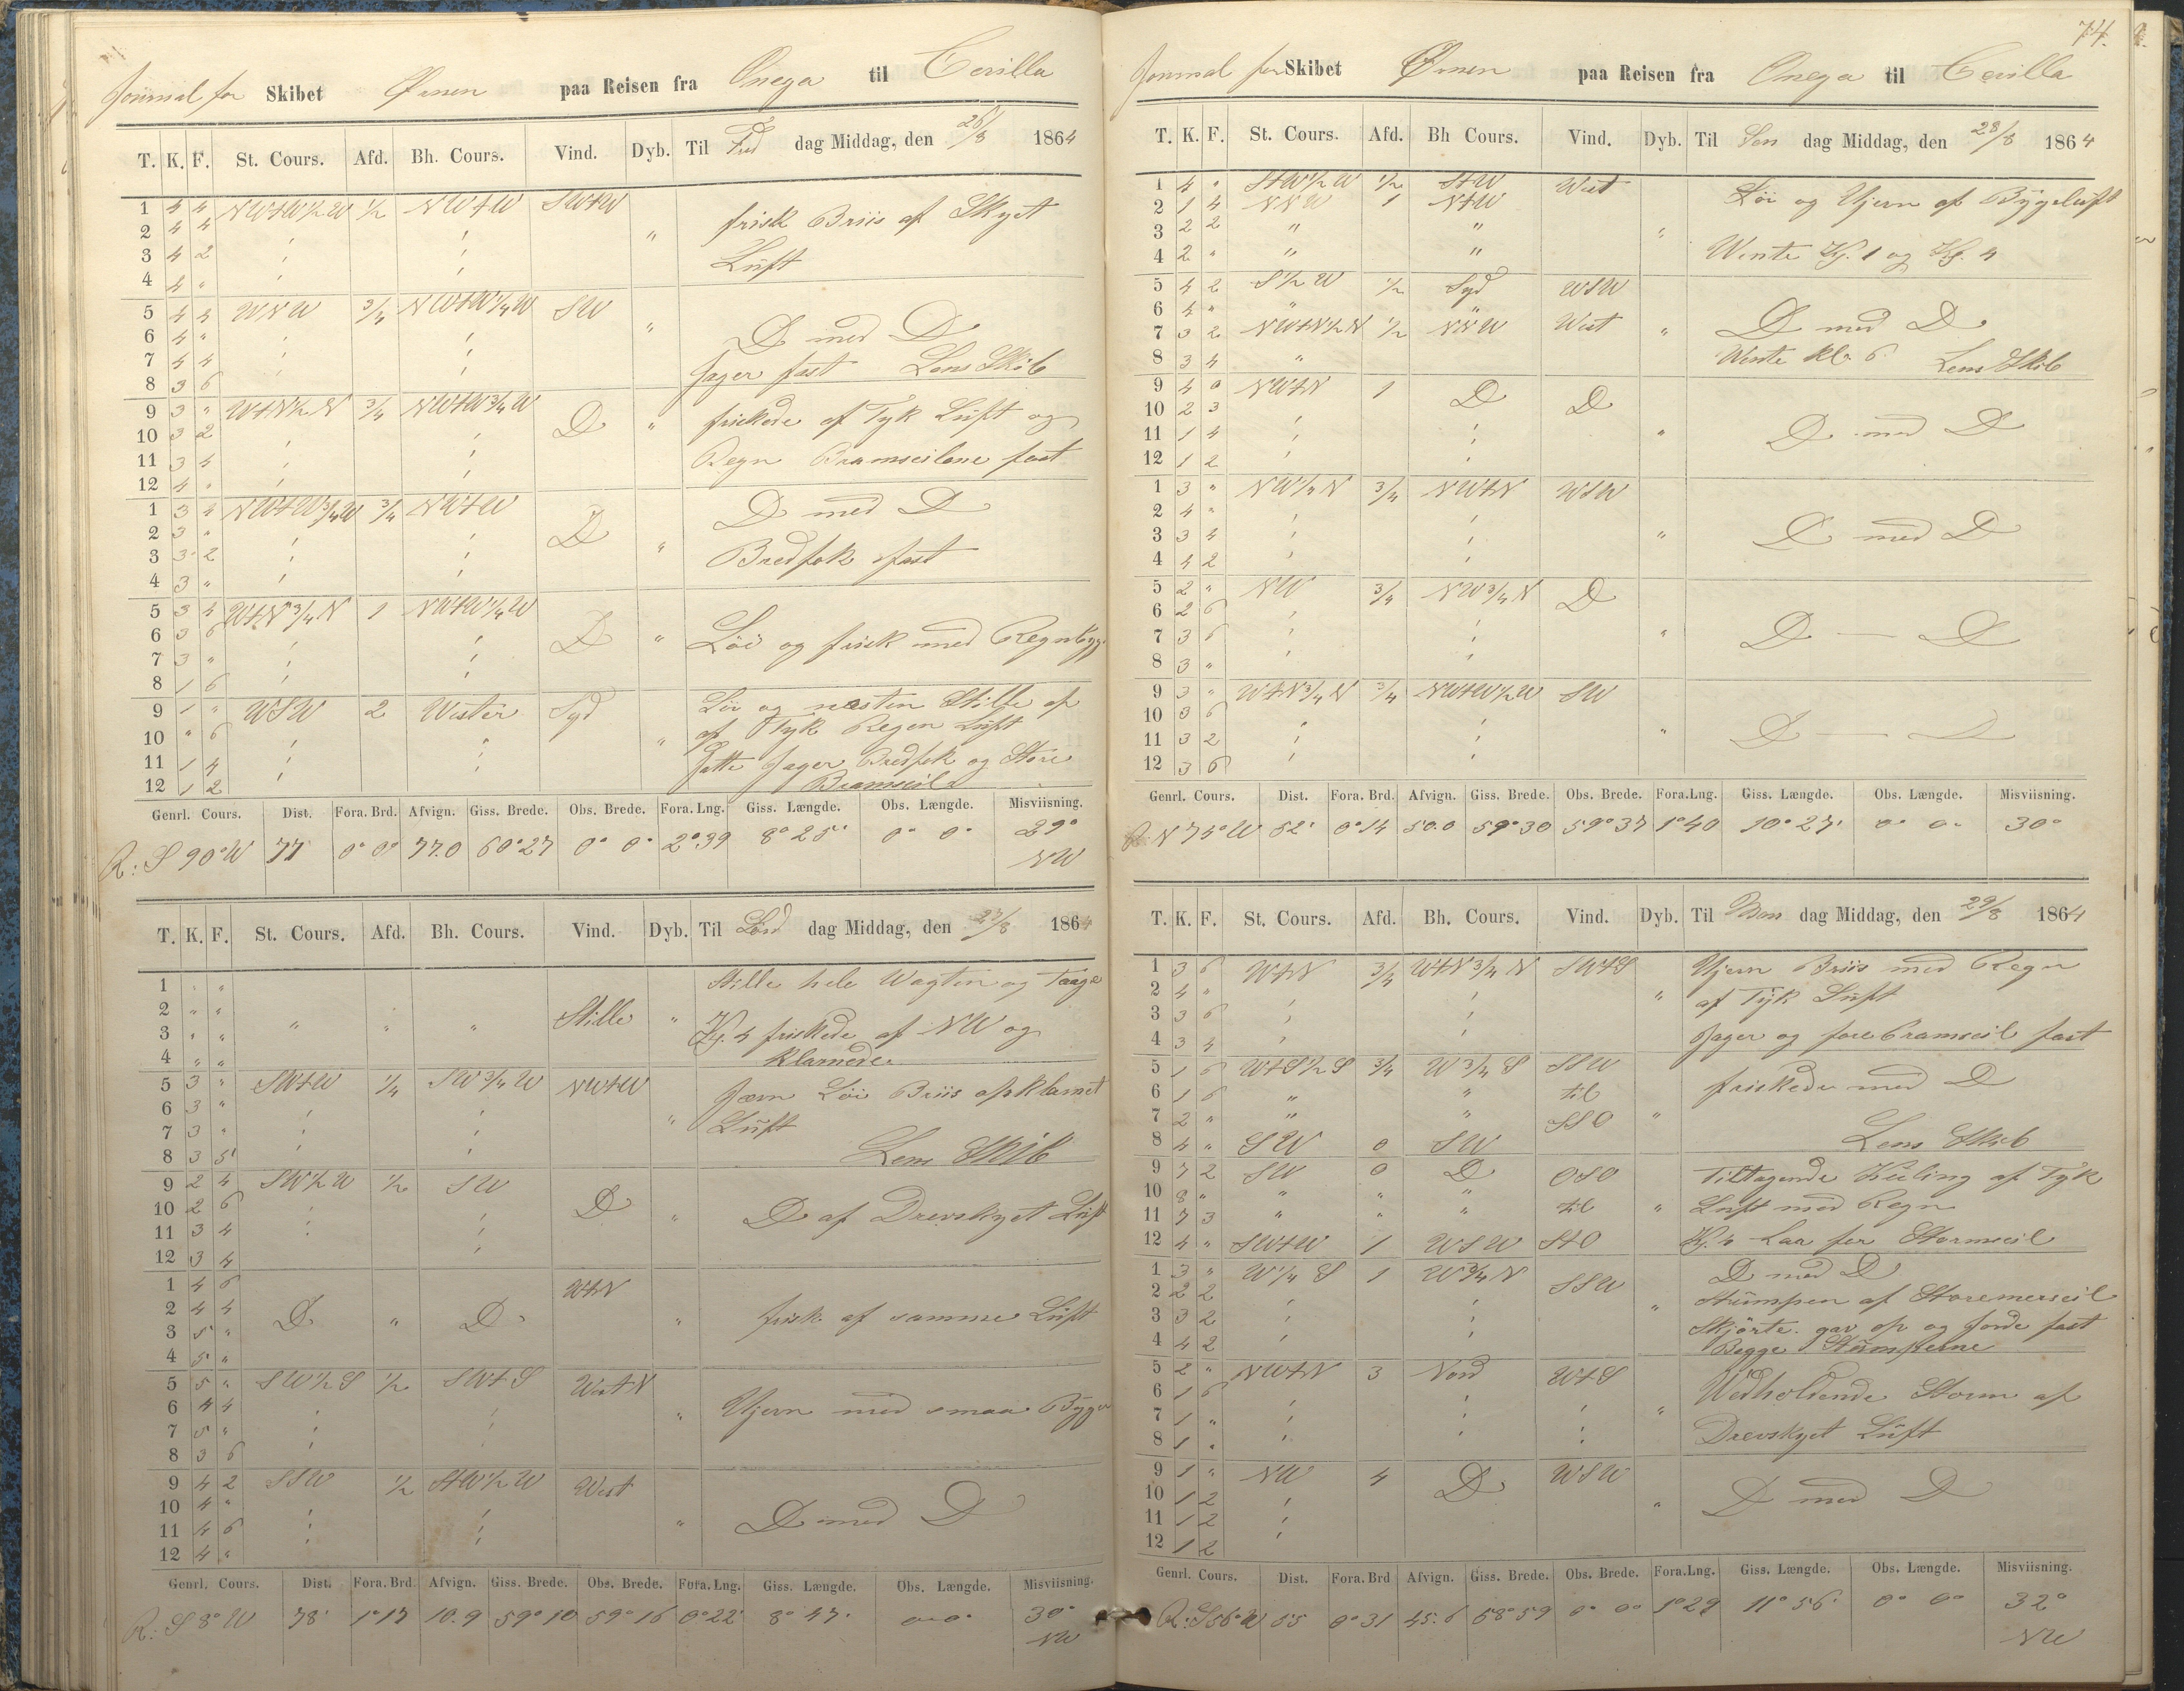 Journal for Skibet Ørnen paa Reisen fra Onega til Cerilla
T. K. F. St. Cours. Afd. Bh. Cours. Vind. Dyb. Til Fre dag Middag, den 26/8 1864
1 4 4 NWtW1/2W 1/2 NWtW SWtW
2 4 4 " frisk Briis af Skyet
3 4 2 Lüft
4 4 "
5 4 4 WNW 3/4 NWtW1/4W SW
6 4 " " D med D
7 4 4 Jager fast Lens Skib
8 3 6
9 3 " WtN1/2N 3/4 NWtW3/4W D " friskede af Tyk Lüft og
10 3 2
11 3 4 Regn Bramseilene fast
12 4 "
1 3 4 NWtW3/4W 3/4 NWtW D med D
2 3 " D "
3 3 2 Bredfok fast
4 3 "
5 3 4 WtN3/4N 1 NWtW1/4W
6 3 6 D " Löi og frisk med Regnbyg
7 3 "
8 1 6
9 1 " WSW 2 Wester Syd Löi og næsten Stille af
10 " 6 " af Tyk Regen Lüft
11 1 4 Satte Jager Bredfok og Store
12 1 2 Bramseil
Genrl. Cours. Dist. Fora. Brd. Afvign. Giss. Brede. Obs. Brede. Fora. Lng. Giss. Længde. Obs. Længde. Misviisning.
R: S 90° W 77 0° 0° 77.0 60°27 0° 0° 2°39 8° 25' 0° 0° 29°
NW
T. K. F. St. Cours. Afd. Bh. Cours. Vind. Dyb. Til Lörd dag Middag, den 27/8 1864
1 " " Stille hele Wagten og Taage
2 " " " " " Stille "
3 " " Kl. 4 friskede af NW og
4 " " Klarnede.
5 3 " SWtW 1/4 SW3/4W NWtW Jævn Löi Briis af klarnet
6 3 " "
7 3 " Lüft
8 3 5 Lens Skib
9 2 4 SW1/2W 1/2 SW
10 2 6 D " D af Drevskyet Lüft
11 3 4
12 3 4
1 4 6 WtN
2 4 4 D " D " frisk af samme Lüft
3 5 "
4 5 "
5 5 " SW1/2S 1/2 SWtS WestN
6 4 4 " Ujevn med smaa Byger
7 5 "
8 3 6
9 4 2 SSW 1/2 StW1/2W West
10 4 " " D med D
11 4 6
12 4 "
Genrl. Cours. Dist. Fora. Brd Afvign. Giss. Brede. Obs. Brede. Fora. Lng. Giss. Længde. Obs. Længde. Misviisning.
R: S 8° W 78' 1°17 10.9 59°10 59°16 0°22' 8° 47' 0° 0° 30°
NW
74.
Journal for Skibet Ørnen paa Reisen fra Onega til Cerilla
T. K. F. St. Cours. Afd. Bh Cours. Vind. Dyb. Til Søn dag Middag, den 28/8 1864
1 4 " StW1/2W 1/2 StW West Löi og Ujevn af Bygeluft
2 1 4 NNW 1 NtW
3 2 2 " " "
4 2 " " " Wente Kl. 1 og Kl. 4
5 4 2 S1/2W 1/2 Syd WSW
6 4 " " "
7 3 2 NWtN1/2N 1/2 NNW West " D med D
8 3 4 " Wente kl. 6 Lens Skib
9 4 0 NWtN 1 D D
10 2 3
11 1 4 " D med D
12 1 2
1 3 " NW1/4N 3/4 NWtN WSW
2 4 "
3 3 4 " D med D
4 4 2
5 2 " NW 3/4 NW3/4N D
6 2 6
7 3 6 " D — D
8 3 "
9 3 " WtN3/4N 3/4 NWtW1/2W SW
10 3 6
11 3 2 " D — D
12 3 6
Genrl. Cours. Dist. Fora. Brd. Afvign. Giss. Brede. Obs. Brede. Fora.Lng. Giss. Længde. Obs. Længde. Misviisning.
R: N 74° W 52' 0°14 50.0 59°30 59°37 1°40 10°27' 0° 0° 30°
T. K. F. St. Cours. Afd. Bh. Cours. Vind. Dyb. Til Man dag Middag, den 29/8 1864
1 3 6 WtN 3/4 WtN3/4N SWtS Ujevn Briis med Regn
2 4 " " af Tyk Lüft
3 3 6
4 3 4 Jager og fore bramseil fast
5 1 6 WtS1/2S 3/4 W3/4S SSW friskede med D
6 1 6 " " til
7 2 " " " SSO "
8 4 " SW 0 SW Lens Skib
9 7 2 SW 0 D OSO Tiltagende Kuling af Tyk
10 8 " " " " til " Luft med Regn
11 7 3 " " "
12 4 " SWtW 1 WSW StO Kl. 4 Laa for Stormseil
1 3 " W1/4S 1 W3/4N SSW D med D
2 2 2 " Stümpen af Storemerseil
3 3 2 Skjörte. gav op og Gjorde fast
4 4 2 Begge Stümpferne
5 2 " NWtN 3 Nord WtS
6 1 6 " Wedholdende Storm af
7 1 "
8 1 " Drevskyet Lüft
9 1 " NW 4 D WSW
10 1 2 " D med D
11 1 2
12 1 2
Genrl. Cours. Dist. Fora. Brd Afvign. Giss. Brede. Obs. Brede. Fora.Lng. Giss. Længde. Obs. Længde. Misviisning.
R: S56°W 55 0°31 45.6 58°59 0° 0° 1°29 11° 56' 0° 0° 32°
NW